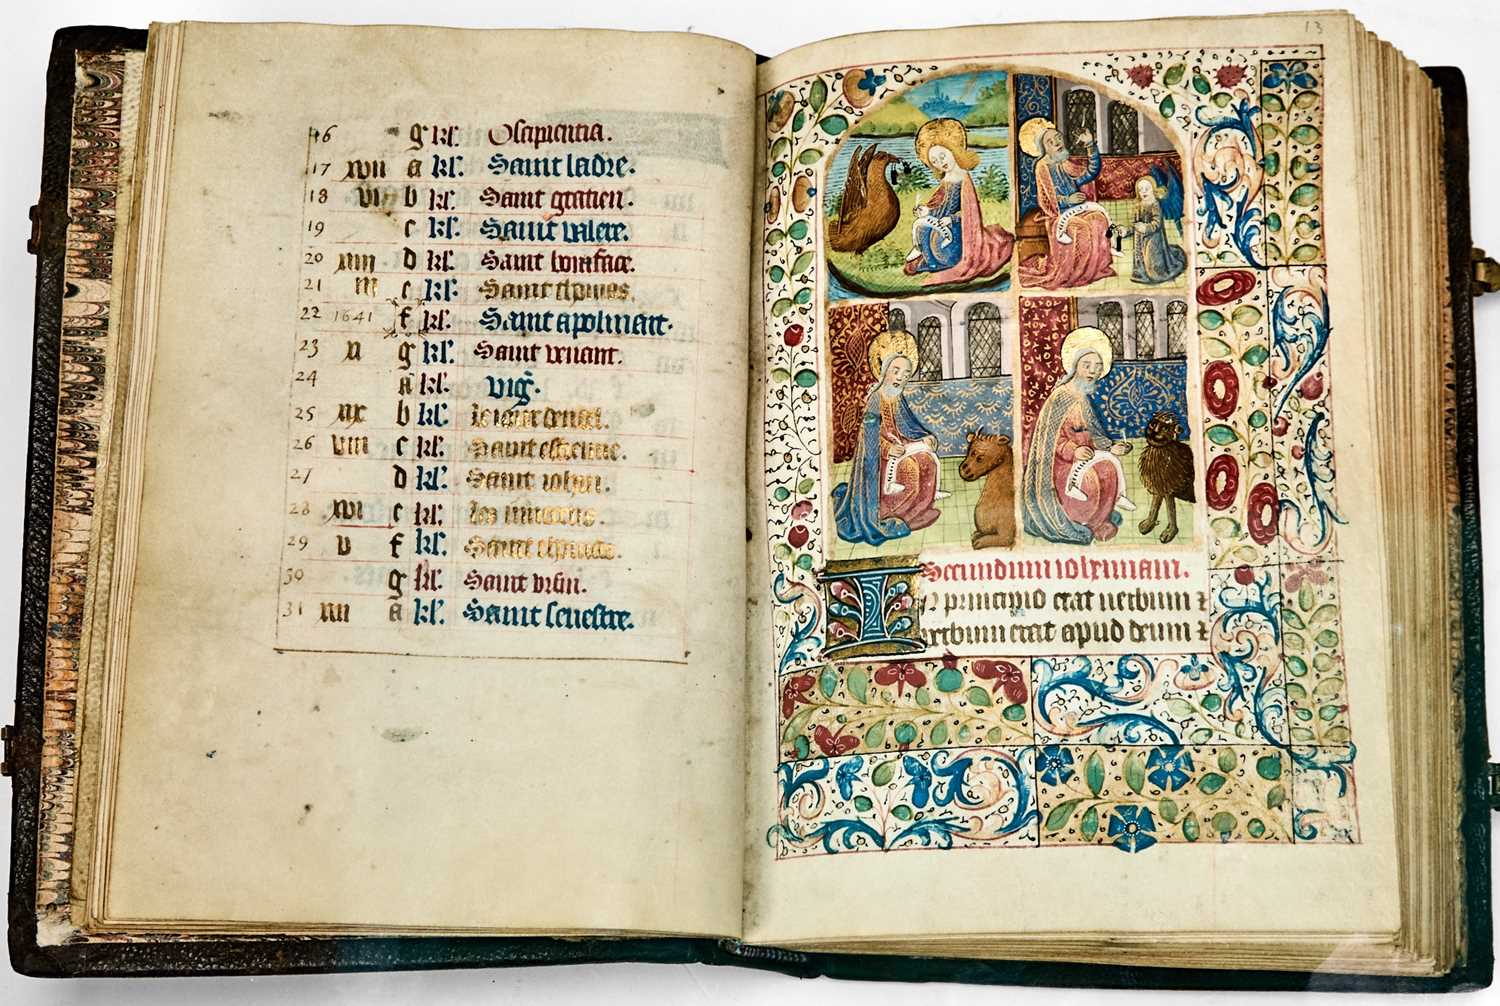 16 g kl. Osapientia.
17 xvii a kl. Saint ladre.
18 vi b kl. Saint gratien.
19 c kl. Saint valere.
20 xiiii d kl. Saint boniface.
21 iii e kl. Saint thomas.
22 1641 f kl. Saint apolinart.
23 xi g kl. Saint venant.
24 a kl. vig.
25 xix b kl. le iour denoel.
26 viii c kl. Saint estienne.
27 d kl. Saint iohan.
28 xvi e kl. les innocens.
29 v f kl. Saint thomas.
30 g kl. Saint ursin.
31 xiii a kl. Saint seuestre.
13
Secundum iohannam.
In principio erat uerbum ⁊
uerbum erat apud deum ⁊